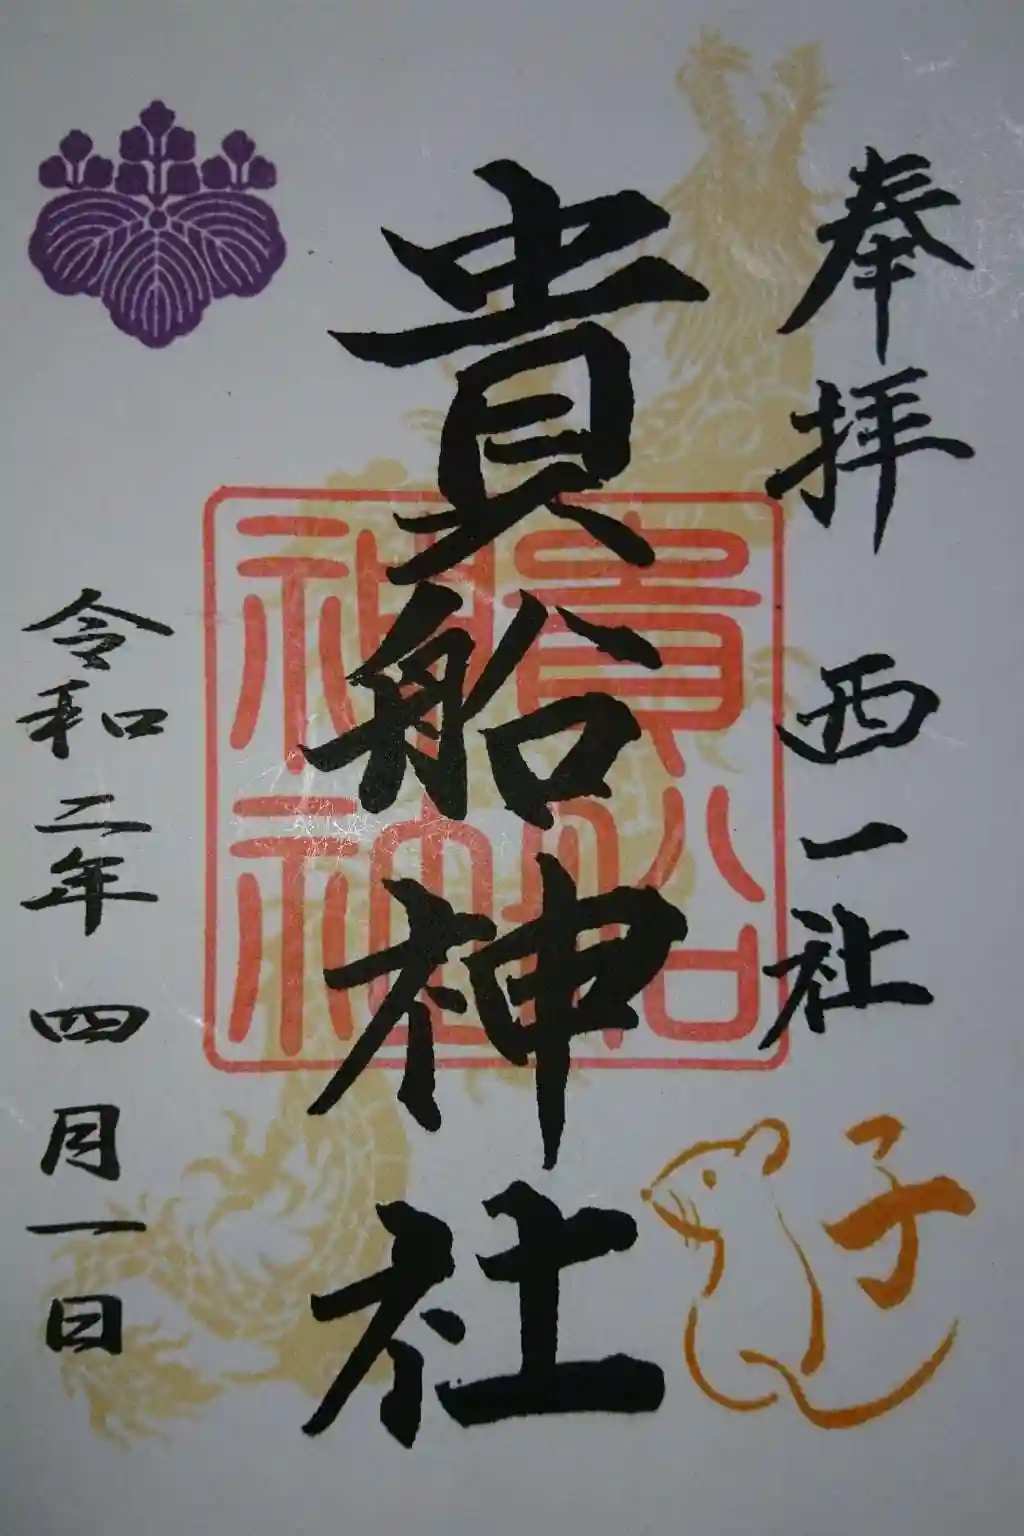 奉拝 西一社
子
貴船神社
貴船神社
令和二年四月一日